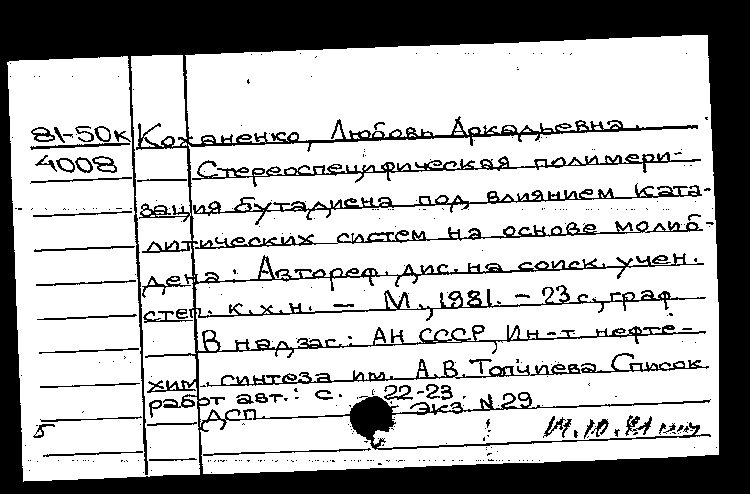 81-50к Коханенко, Любовь Аркадьевна.
4008 Стереоспецифическая полимери-
зация бутадиена под влиянием ката-
литических систем на основе молиб-
дена: Автореф. дис. на соиск. учен.
степ. к.х.н. – М., 1981. – 23 с., граф.
В надзаг.: АН СССР, Ин-т нефте-
хим. синтеза им. А.В. Топчиева. Список
работ авт.: с. 22-23.
ДСП. Экз. N 29.
5